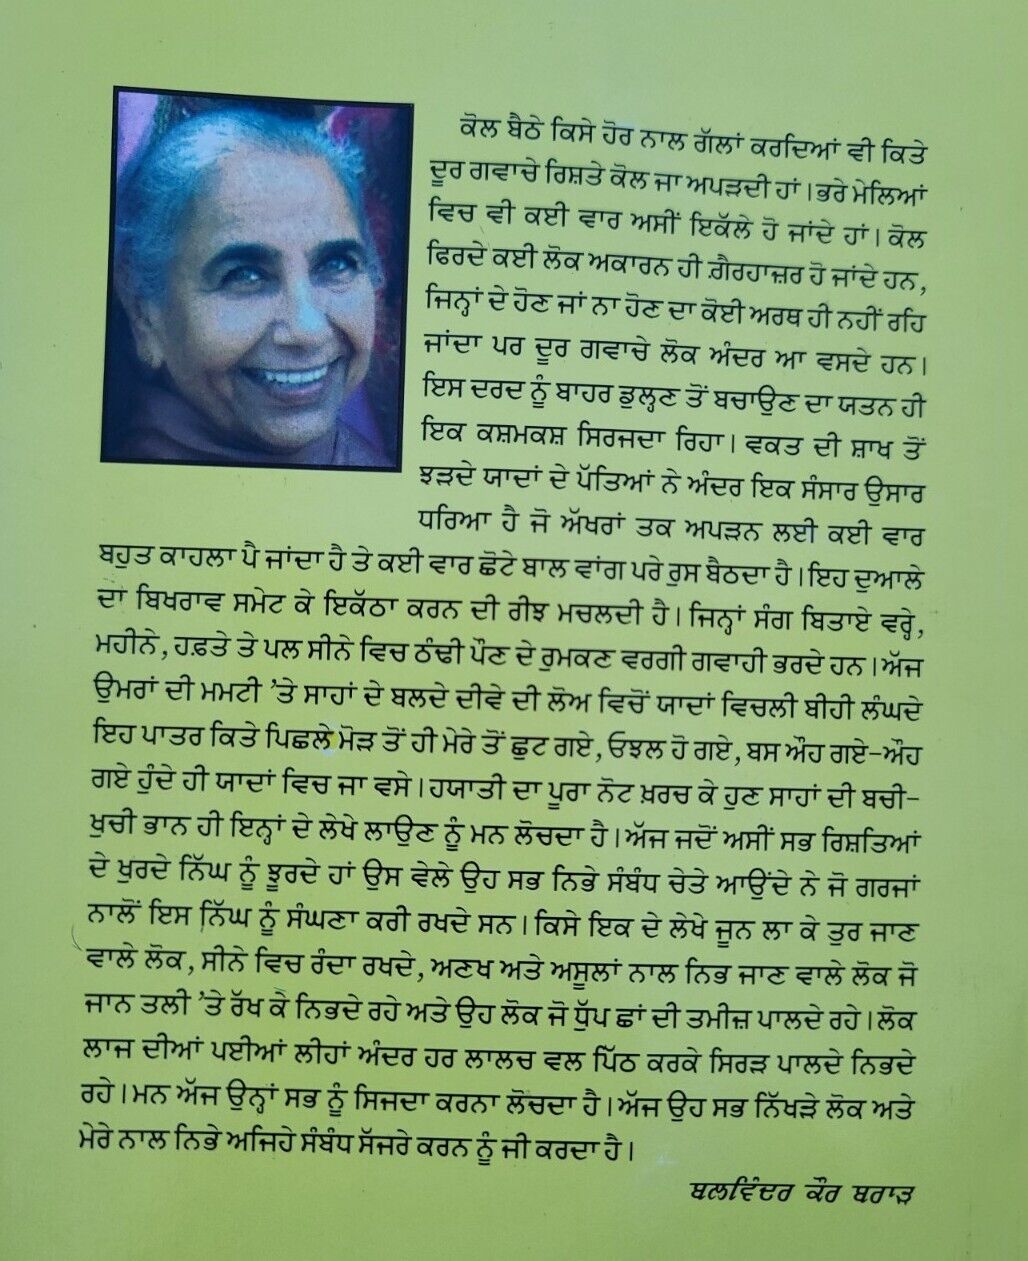 ਕੋਲ ਬੈਠੇ ਕਿਸੇ ਹੋਰ ਨਾਲ ਗੱਲਾਂ ਕਰਦਿਆਂ ਵੀ ਕਿਤੇ
ਦੂਰ ਗਵਾਚੇ ਰਿਸ਼ਤੇ ਕੋਲ ਜਾ ਅਪੜਦੀ ਹਾਂ। ਭਰੇ ਮੇਲਿਆਂ
ਵਿਚ ਵੀ ਕਈ ਵਾਰ ਅਸੀਂ ਇਕੱਲੇ ਹੋ ਜਾਂਦੇ ਹਾਂ। ਕੋਲ
ਫਿਰਦੇ ਕਈ ਲੋਕ ਅਕਾਰਨ ਹੀ ਗ਼ੈਰਹਾਜ਼ਰ ਹੋ ਜਾਂਦੇ ਹਨ,
ਜਿਨ੍ਹਾਂ ਦੇ ਹੋਣ ਜਾਂ ਨਾ ਹੋਣ ਦਾ ਕੋਈ ਅਰਥ ਹੀ ਨਹੀਂ ਰਹਿ
ਜਾਂਦਾ ਪਰ ਦੂਰ ਗਵਾਚੇ ਲੋਕ ਅੰਦਰ ਆ ਵਸਦੇ ਹਨ।
ਇਸ ਦਰਦ ਨੂੰ ਬਾਹਰ ਡੁਲ੍ਹਣ ਤੋਂ ਬਚਾਉਣ ਦਾ ਯਤਨ ਹੀ
ਇਕ ਕਸ਼ਮਕਸ਼ ਸਿਰਜਦਾ ਰਿਹਾ। ਵਕਤ ਦੀ ਸ਼ਾਖ ਤੋਂ
ਝੜਦੇ ਯਾਦਾਂ ਦੇ ਪੱਤਿਆਂ ਨੇ ਅੰਦਰ ਇਕ ਸੰਸਾਰ ਉਸਾਰ
ਧਰਿਆ ਹੈ ਜੋ ਅੱਖਰਾਂ ਤਕ ਅਪੜਨ ਲਈ ਕਈ ਵਾਰ
ਬਹੁਤ ਕਾਹਲਾ ਪੈ ਜਾਂਦਾ ਹੈ ਤੇ ਕਈ ਵਾਰ ਛੋਟੇ ਬਾਲ ਵਾਂਗ ਪਰੇ ਰੁਸ ਬੈਠਦਾ ਹੈ। ਇਹ ਦੁਆਲੇ
ਦਾ ਬਿਖਰਾਵ ਸਮੇਟ ਕੇ ਇਕੱਠਾ ਕਰਨ ਦੀ ਰੀਝ ਮਚਲਦੀ ਹੈ। ਜਿਨ੍ਹਾਂ ਸੰਗ ਬਿਤਾਏ ਵਰ੍ਹੇ,
ਮਹੀਨੇ, ਹਫ਼ਤੇ ਤੇ ਪਲ ਸੀਨੇ ਵਿਚ ਠੰਢੀ ਪੌਣ ਦੇ ਰੁਮਕਣ ਵਰਗੀ ਗਵਾਹੀ ਭਰਦੇ ਹਨ। ਅੱਜ
ਉਮਰਾਂ ਦੀ ਮਮਟੀ ’ਤੇ ਸਾਹਾਂ ਦੇ ਬਲਦੇ ਦੀਵੇ ਦੀ ਲੋਅ ਵਿਚੋਂ ਯਾਦਾਂ ਵਿਚਲੀ ਬੀਹੀ ਲੰਘਦੇ
ਇਹ ਪਾਤਰ ਕਿਤੇ ਪਿਛਲੇ ਮੋੜ ਤੋਂ ਹੀ ਮੇਰੇ ਤੋਂ ਛੁਟ ਗਏ, ਓਝਲ ਹੋ ਗਏ, ਬਸ ਔਹ ਗਏ-ਔਹ
ਗਏ ਹੁੰਦੇ ਹੀ ਯਾਦਾਂ ਵਿਚ ਜਾ ਵਸੇ। ਹਯਾਤੀ ਦਾ ਪੂਰਾ ਨੋਟ ਖ਼ਰਚ ਕੇ ਹੁਣ ਸਾਹਾਂ ਦੀ ਬਚੀ-
ਖੁਚੀ ਭਾਨ ਹੀ ਇਨ੍ਹਾਂ ਦੇ ਲੇਖੇ ਲਾਉਣ ਨੂੰ ਮਨ ਲੋਚਦਾ ਹੈ। ਅੱਜ ਜਦੋਂ ਅਸੀਂ ਸਭ ਰਿਸ਼ਤਿਆਂ
ਦੇ ਖੁਰਦੇ ਨਿੱਘ ਨੂੰ ਝੂਰਦੇ ਹਾਂ ਉਸ ਵੇਲੇ ਉਹ ਸਭ ਨਿਭੇ ਸੰਬੰਧ ਚੇਤੇ ਆਉਂਦੇ ਨੇ ਜੋ ਗਰਜਾਂ
ਨਾਲੋਂ ਇਸ ਨਿੱਘ ਨੂੰ ਸੰਘਣਾ ਕਰੀ ਰਖਦੇ ਸਨ। ਕਿਸੇ ਇਕ ਦੇ ਲੇਖੇ ਜੂਨ ਲਾ ਕੇ ਤੁਰ ਜਾਣ
ਵਾਲੇ ਲੋਕ, ਸੀਨੇ ਵਿਚ ਰੰਦਾ ਰਖਦੇ, ਅਣਖ ਅਤੇ ਅਸੂਲਾਂ ਨਾਲ ਨਿਭ ਜਾਣ ਵਾਲੇ ਲੋਕ ਜੋ
ਜਾਨ ਤਲੀ ’ਤੇ ਰੱਖ ਕੇ ਨਿਭਦੇ ਰਹੇ ਅਤੇ ਉਹ ਲੋਕ ਜੋ ਧੁੱਪ ਛਾਂ ਦੀ ਤਮੀਜ਼ ਪਾਲਦੇ ਰਹੇ। ਲੋਕ
ਲਾਜ ਦੀਆਂ ਪਈਆਂ ਲੀਹਾਂ ਅੰਦਰ ਹਰ ਲਾਲਚ ਵਲ ਪਿੱਠ ਕਰਕੇ ਸਿਰੜ ਪਾਲਦੇ ਨਿਭਦੇ
ਰਹੇ। ਮਨ ਅੱਜ ਉਨ੍ਹਾਂ ਸਭ ਨੂੰ ਸਿਜਦਾ ਕਰਨਾ ਲੋਚਦਾ ਹੈ। ਅੱਜ ਉਹ ਸਭ ਨਿੱਖੜੇ ਲੋਕ ਅਤੇ
ਮੇਰੇ ਨਾਲ ਨਿਭੇ ਅਜਿਹੇ ਸੰਬੰਧ ਸੱਜਰੇ ਕਰਨ ਨੂੰ ਜੀ ਕਰਦਾ ਹੈ।
ਬਲਵਿੰਦਰ ਕੌਰ ਬਰਾੜ